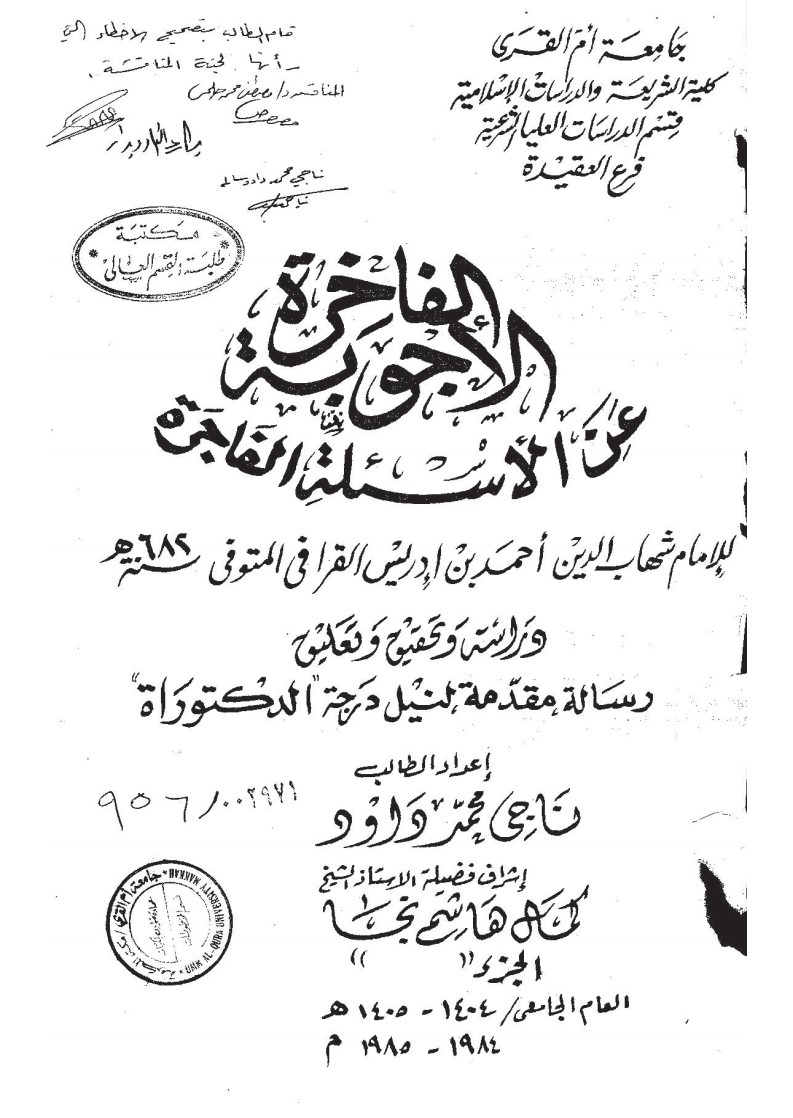 جامعة أم القرى
كلية الشريعة والدراسات الإسلامية
قسم الدراسات العليا الشرعية
فرع العقيدة
قام الطالب بتصحيح الاخطاء التي
رأتها لجنة المناقشة.
ناجي محمد داود سالم
مكتبة
طلبة القسم العالي
الأجوبة الفاخرة
عن الأسئلة الفاجرة
للإمام شهاب الدين أحمد بن إدريس القرافي المتوفى سنة ٦٨٢ هـ
دراسة وتحقيق وتعليق
رسالة مقدمة لنيل درجة "الدكتوراة"
إعداد الطالب
ناجي محمد داود
٩٥٦/٠٠٢٩٧١
إشراف فضيلة الاستاذ الشيخ
كمال هاشم نجا
الجزء " "
جامعة أم القرى / مكة المكرمة
UMM AL-QURA UNIVERSITY MAKKAH
العام الجامعي / ١٤٠٤ - ١٤٠٥ هـ
١٩٨٤ - ١٩٨٥ م